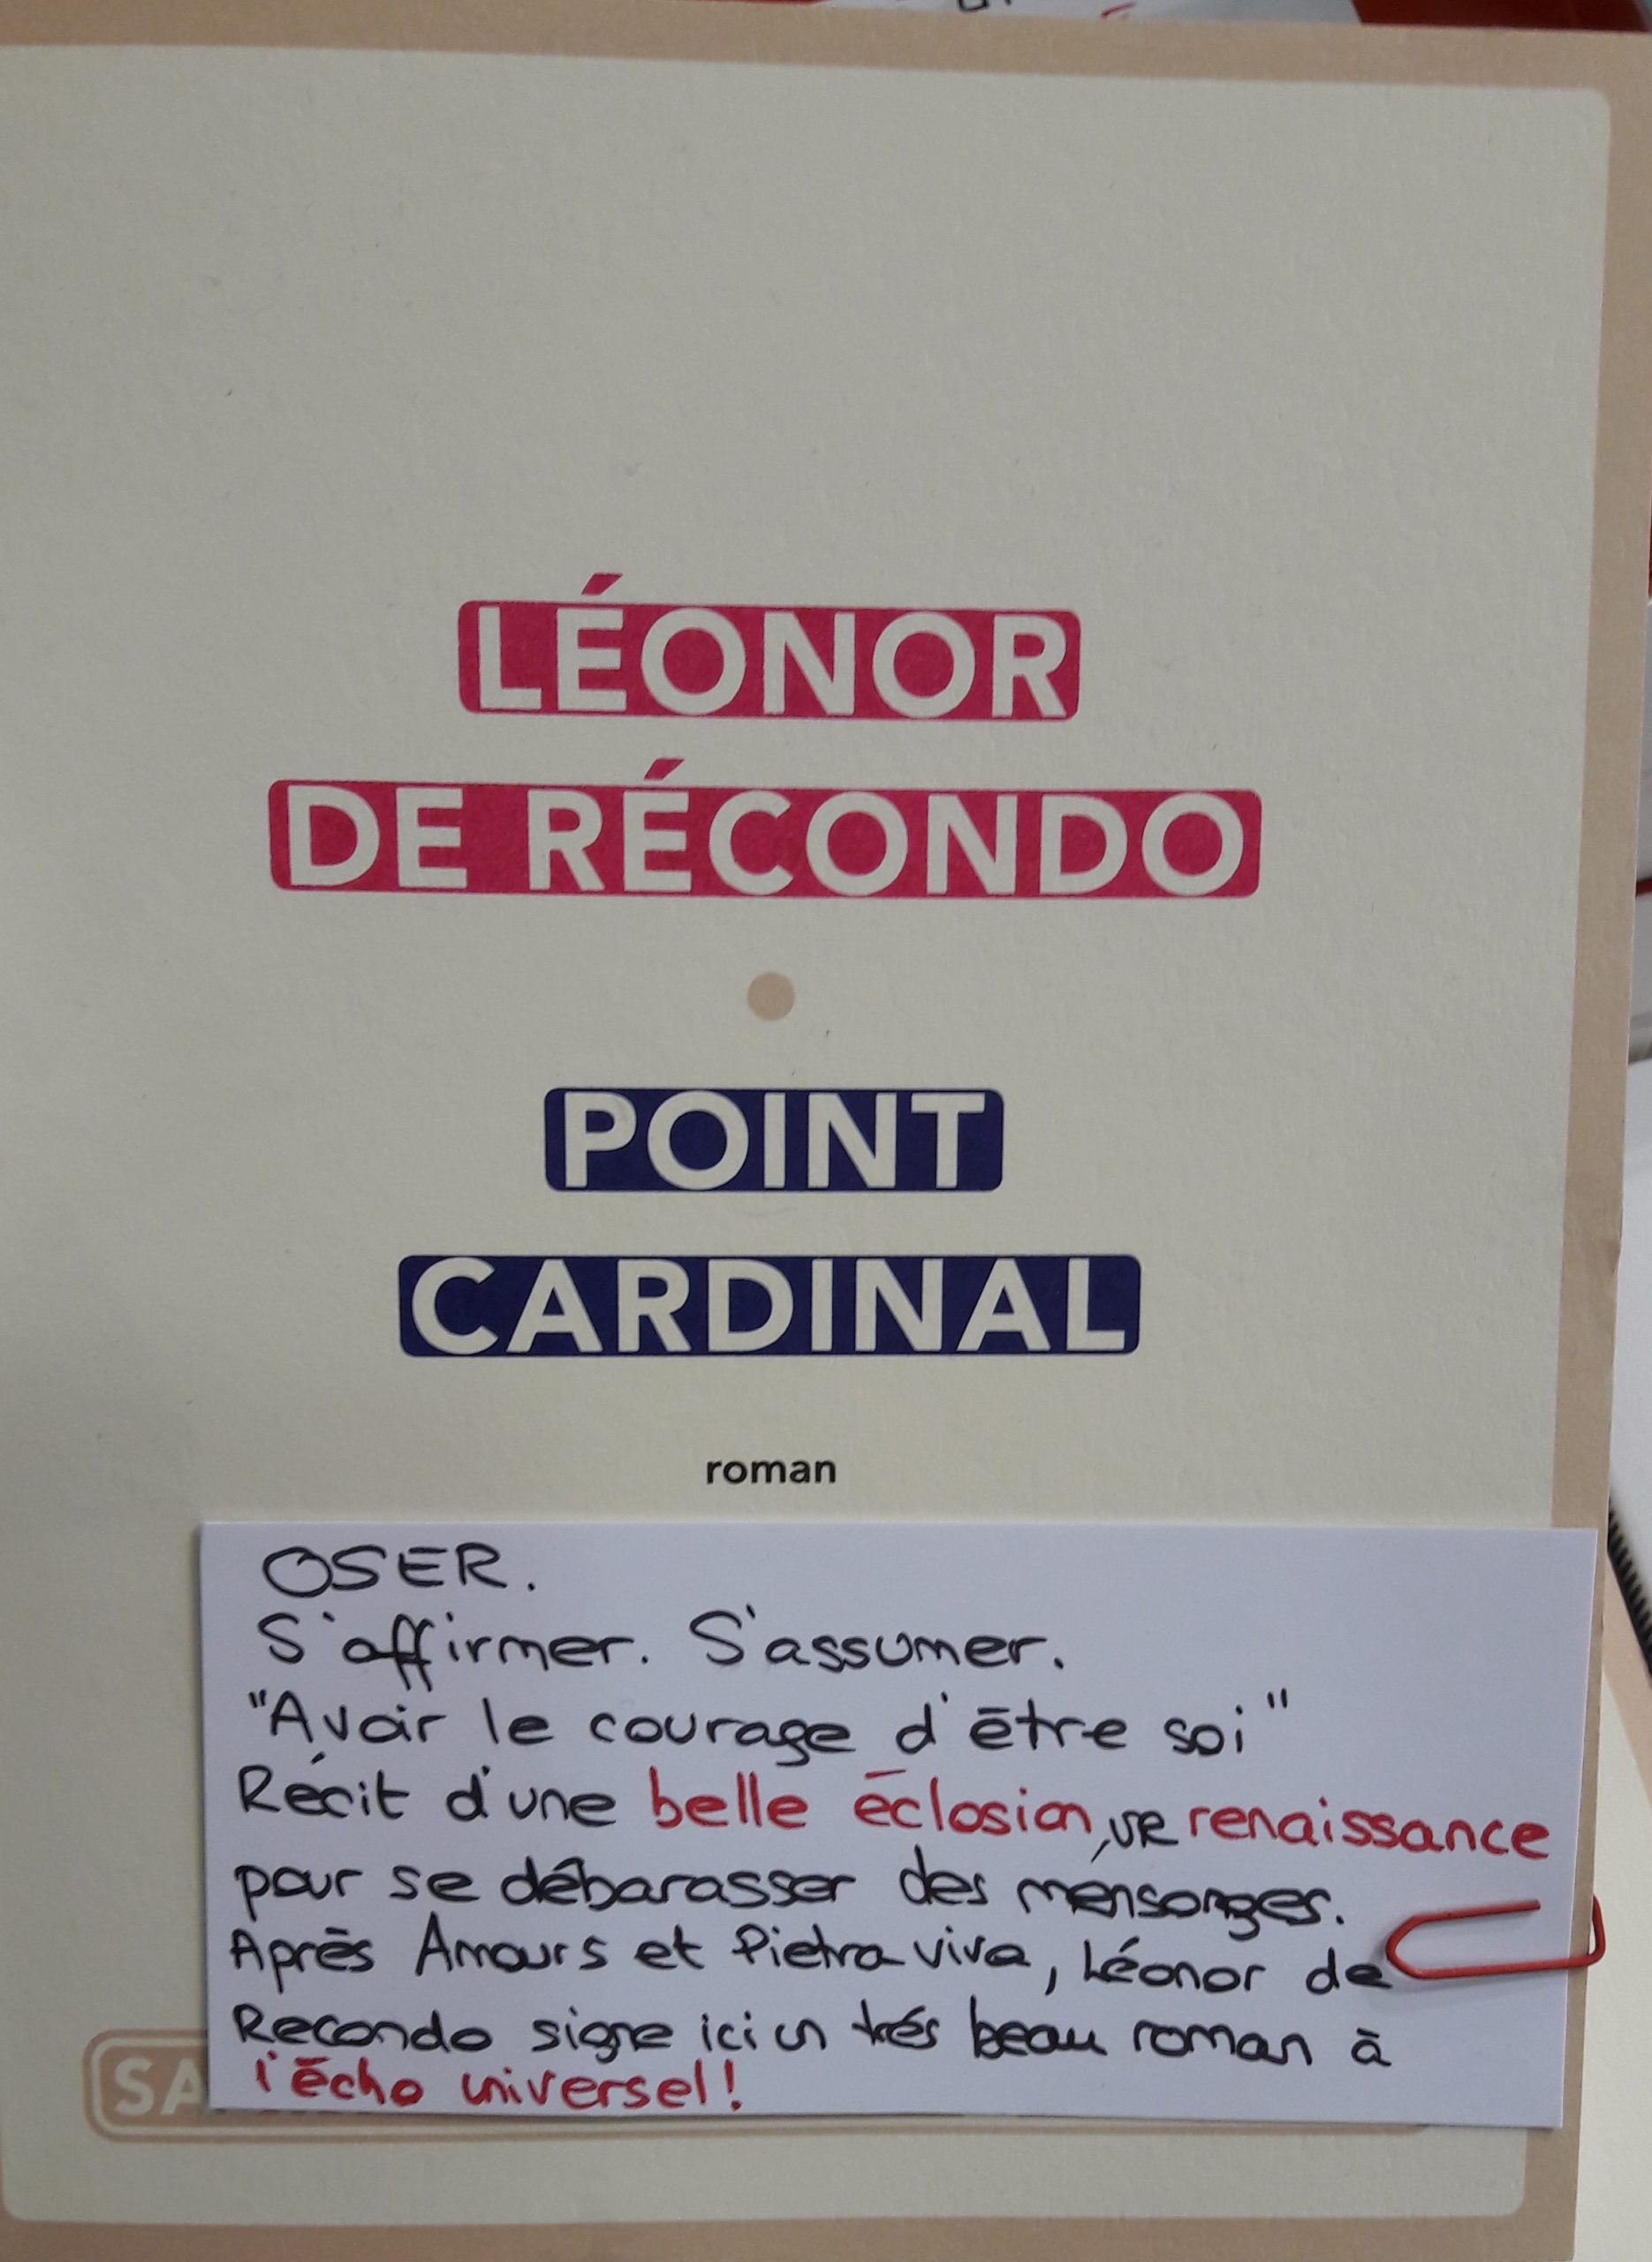 LÉONOR
DE RÉCONDO
POINT
CARDINAL
roman
OSER.
S'affirmer. S'assumer.
"Avoir le courage d'être soi"
Récit d'une belle éclosion, une renaissance
pour se débarasser des mensonges.
Après Amours et Pietra viva, Léonor de
Recondo signe ici un très beau roman à
l'écho universel!
SA